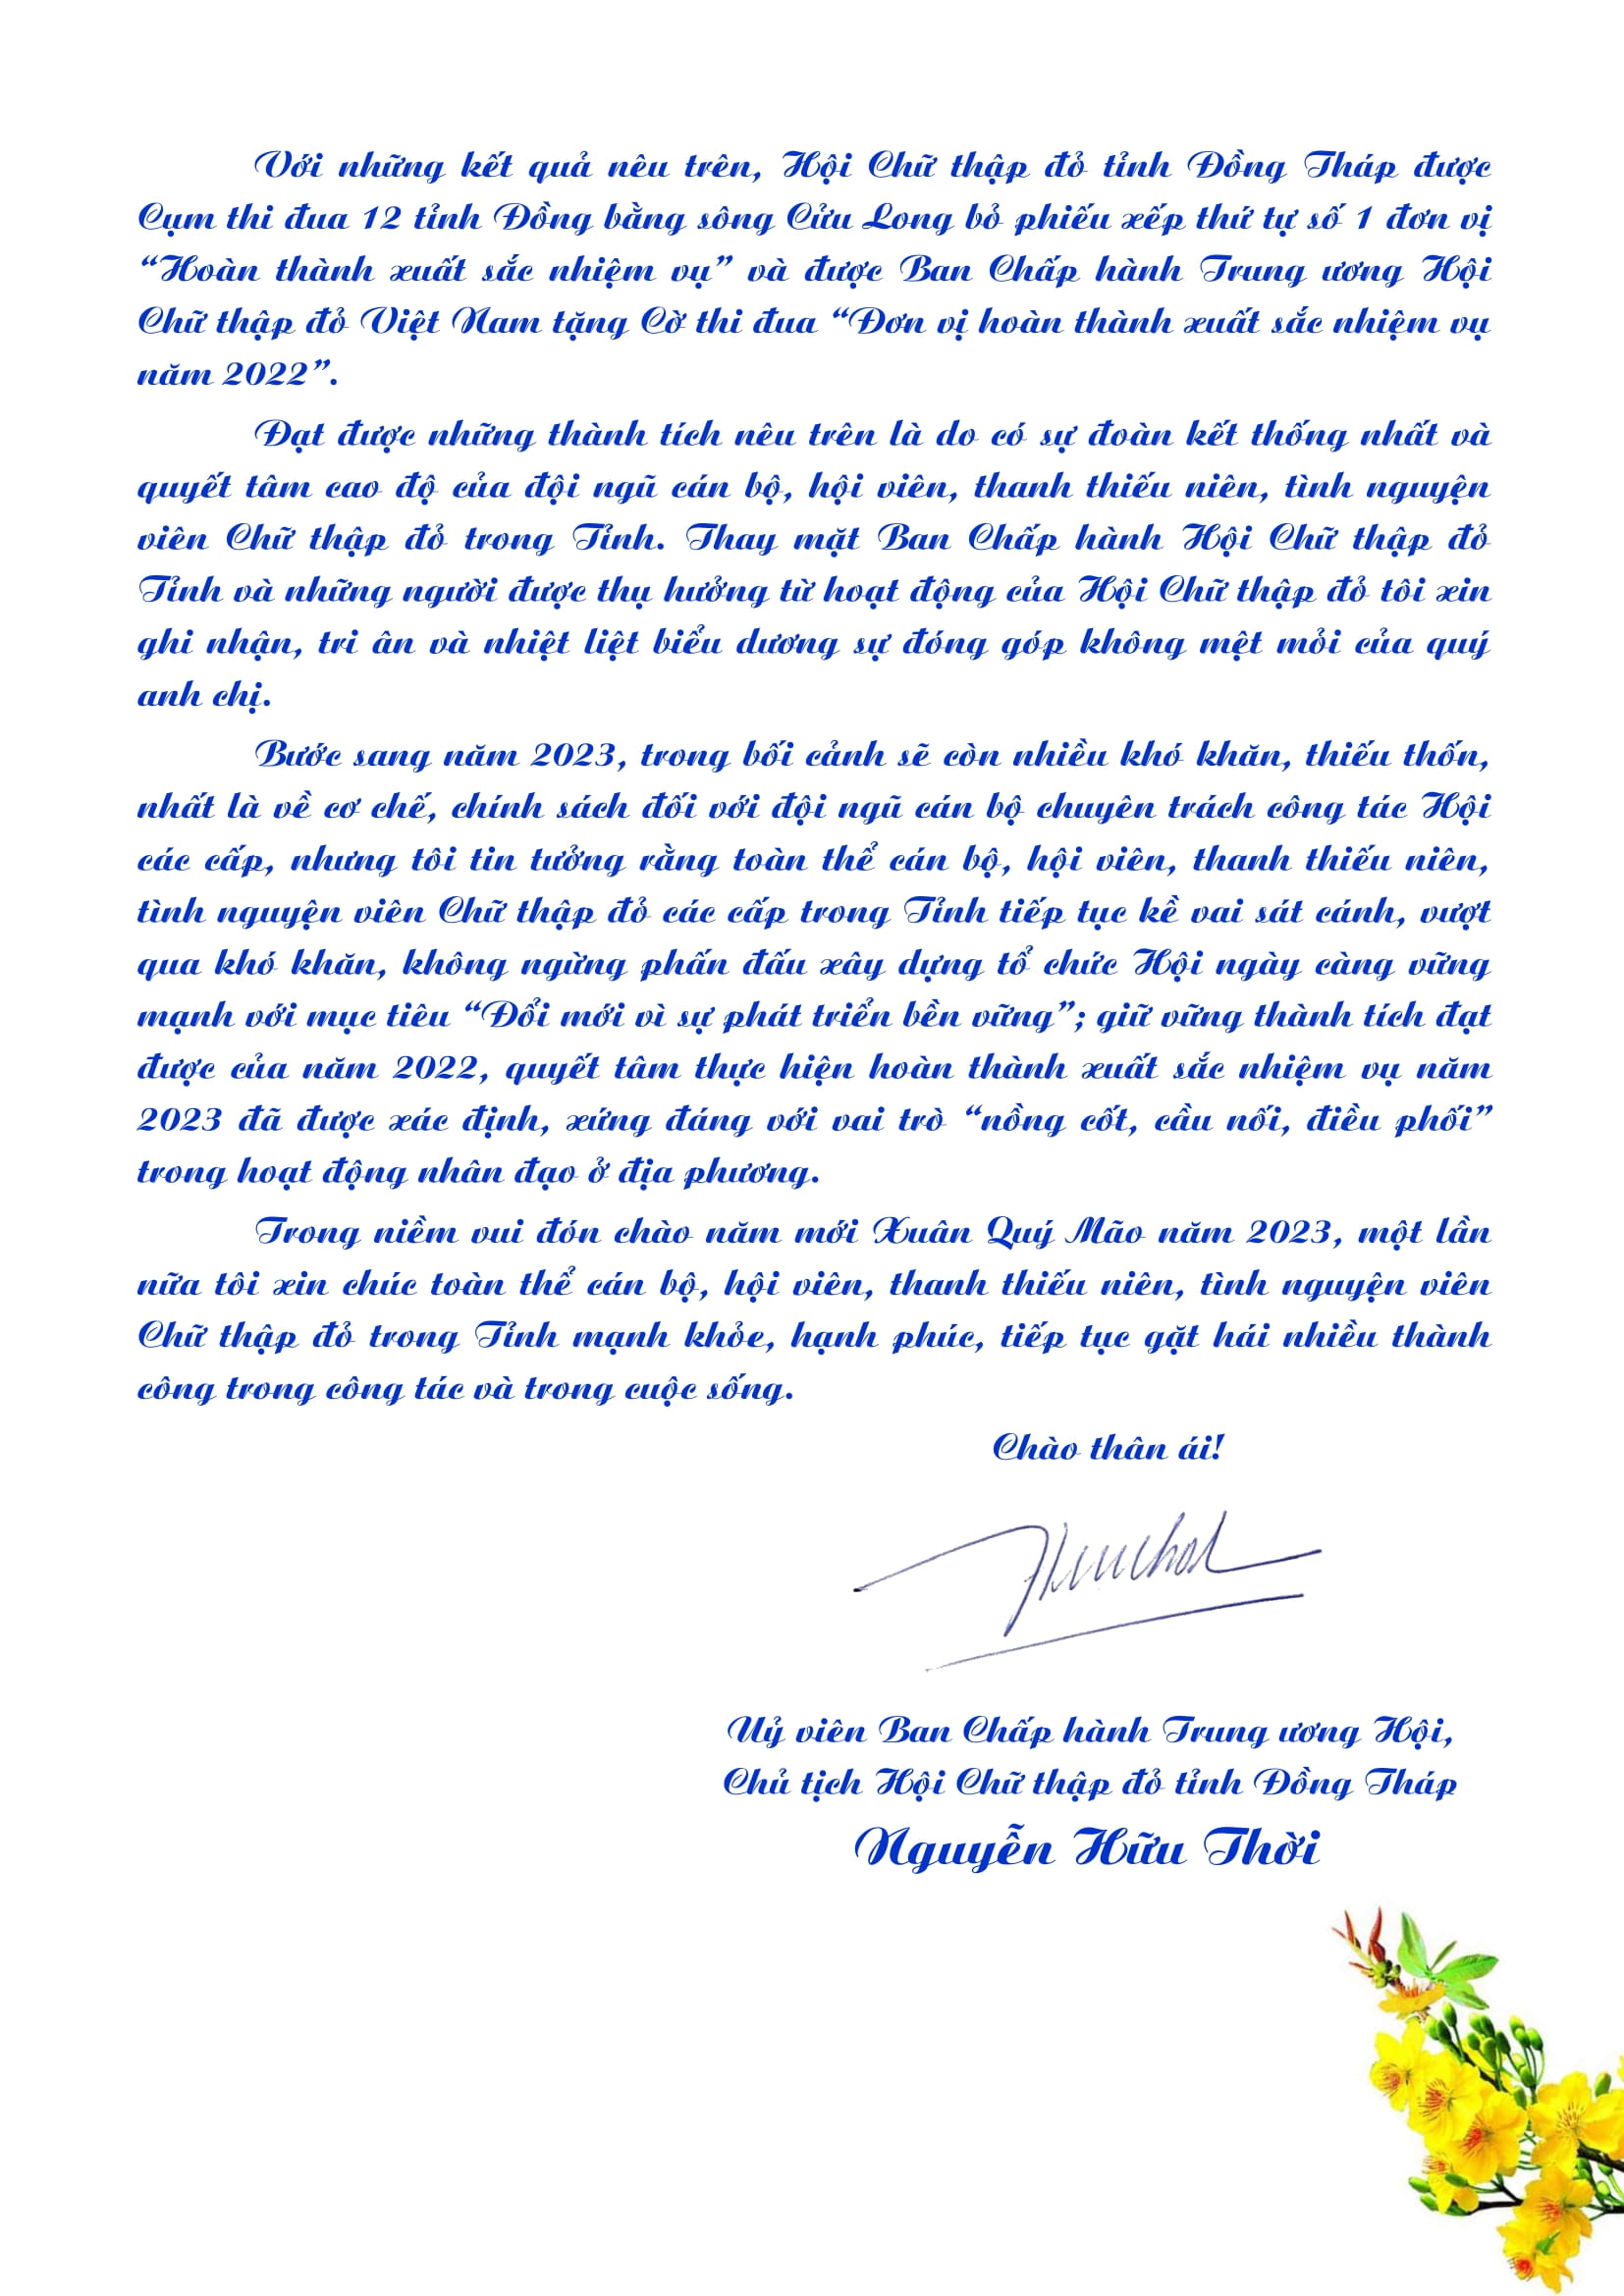 Với những kết quả nêu trên, Hội Chữ thập đỏ tỉnh Đồng Tháp được
Cụm thi đua 12 tỉnh Đồng bằng sông Cửu Long bỏ phiếu xếp thứ tự số 1 đơn vị
“Hoàn thành xuất sắc nhiệm vụ” và được Ban Chấp hành Trung ương Hội
Chữ thập đỏ Việt Nam tặng Cờ thi đua “Đơn vị hoàn thành xuất sắc nhiệm vụ
năm 2022”.
Đạt được những thành tích nêu trên là do có sự đoàn kết thống nhất và
quyết tâm cao độ của đội ngũ cán bộ, hội viên, thanh thiếu niên, tình nguyện
viên Chữ thập đỏ trong Tỉnh. Thay mặt Ban Chấp hành Hội Chữ thập đỏ
Tỉnh và những người được thụ hưởng từ hoạt động của Hội Chữ thập đỏ tôi xin
ghi nhận, tri ân và nhiệt liệt biểu dương sự đóng góp không mệt mỏi của quý
anh chị.
Bước sang năm 2023, trong bối cảnh sẽ còn nhiều khó khăn, thiếu thốn,
nhất là về cơ chế, chính sách đối với đội ngũ cán bộ chuyên trách công tác Hội
các cấp, nhưng tôi tin tưởng rằng toàn thể cán bộ, hội viên, thanh thiếu niên,
tình nguyện viên Chữ thập đỏ các cấp trong Tỉnh tiếp tục kề vai sát cánh, vượt
qua khó khăn, không ngừng phấn đấu xây dựng tổ chức Hội ngày càng vững
mạnh với mục tiêu “Đổi mới vì sự phát triển bền vững”; giữ vững thành tích đạt
được của năm 2022, quyết tâm thực hiện hoàn thành xuất sắc nhiệm vụ năm
2023 đã được xác định, xứng đáng với vai trò “nồng cốt, cầu nối, điều phối”
trong hoạt động nhân đạo ở địa phương.
Trong niềm vui đón chào năm mới Xuân Quý Mão năm 2023, một lần
nữa tôi xin chúc toàn thể cán bộ, hội viên, thanh thiếu niên, tình nguyện viên
Chữ thập đỏ trong Tỉnh mạnh khỏe, hạnh phúc, tiếp tục gặt hái nhiều thành
công trong công tác và trong cuộc sống.
Chào thân ái!
Uỷ viên Ban Chấp hành Trung ương Hội,
Chủ tịch Hội Chữ thập đỏ tỉnh Đồng Tháp
Nguyễn Hữu Thời